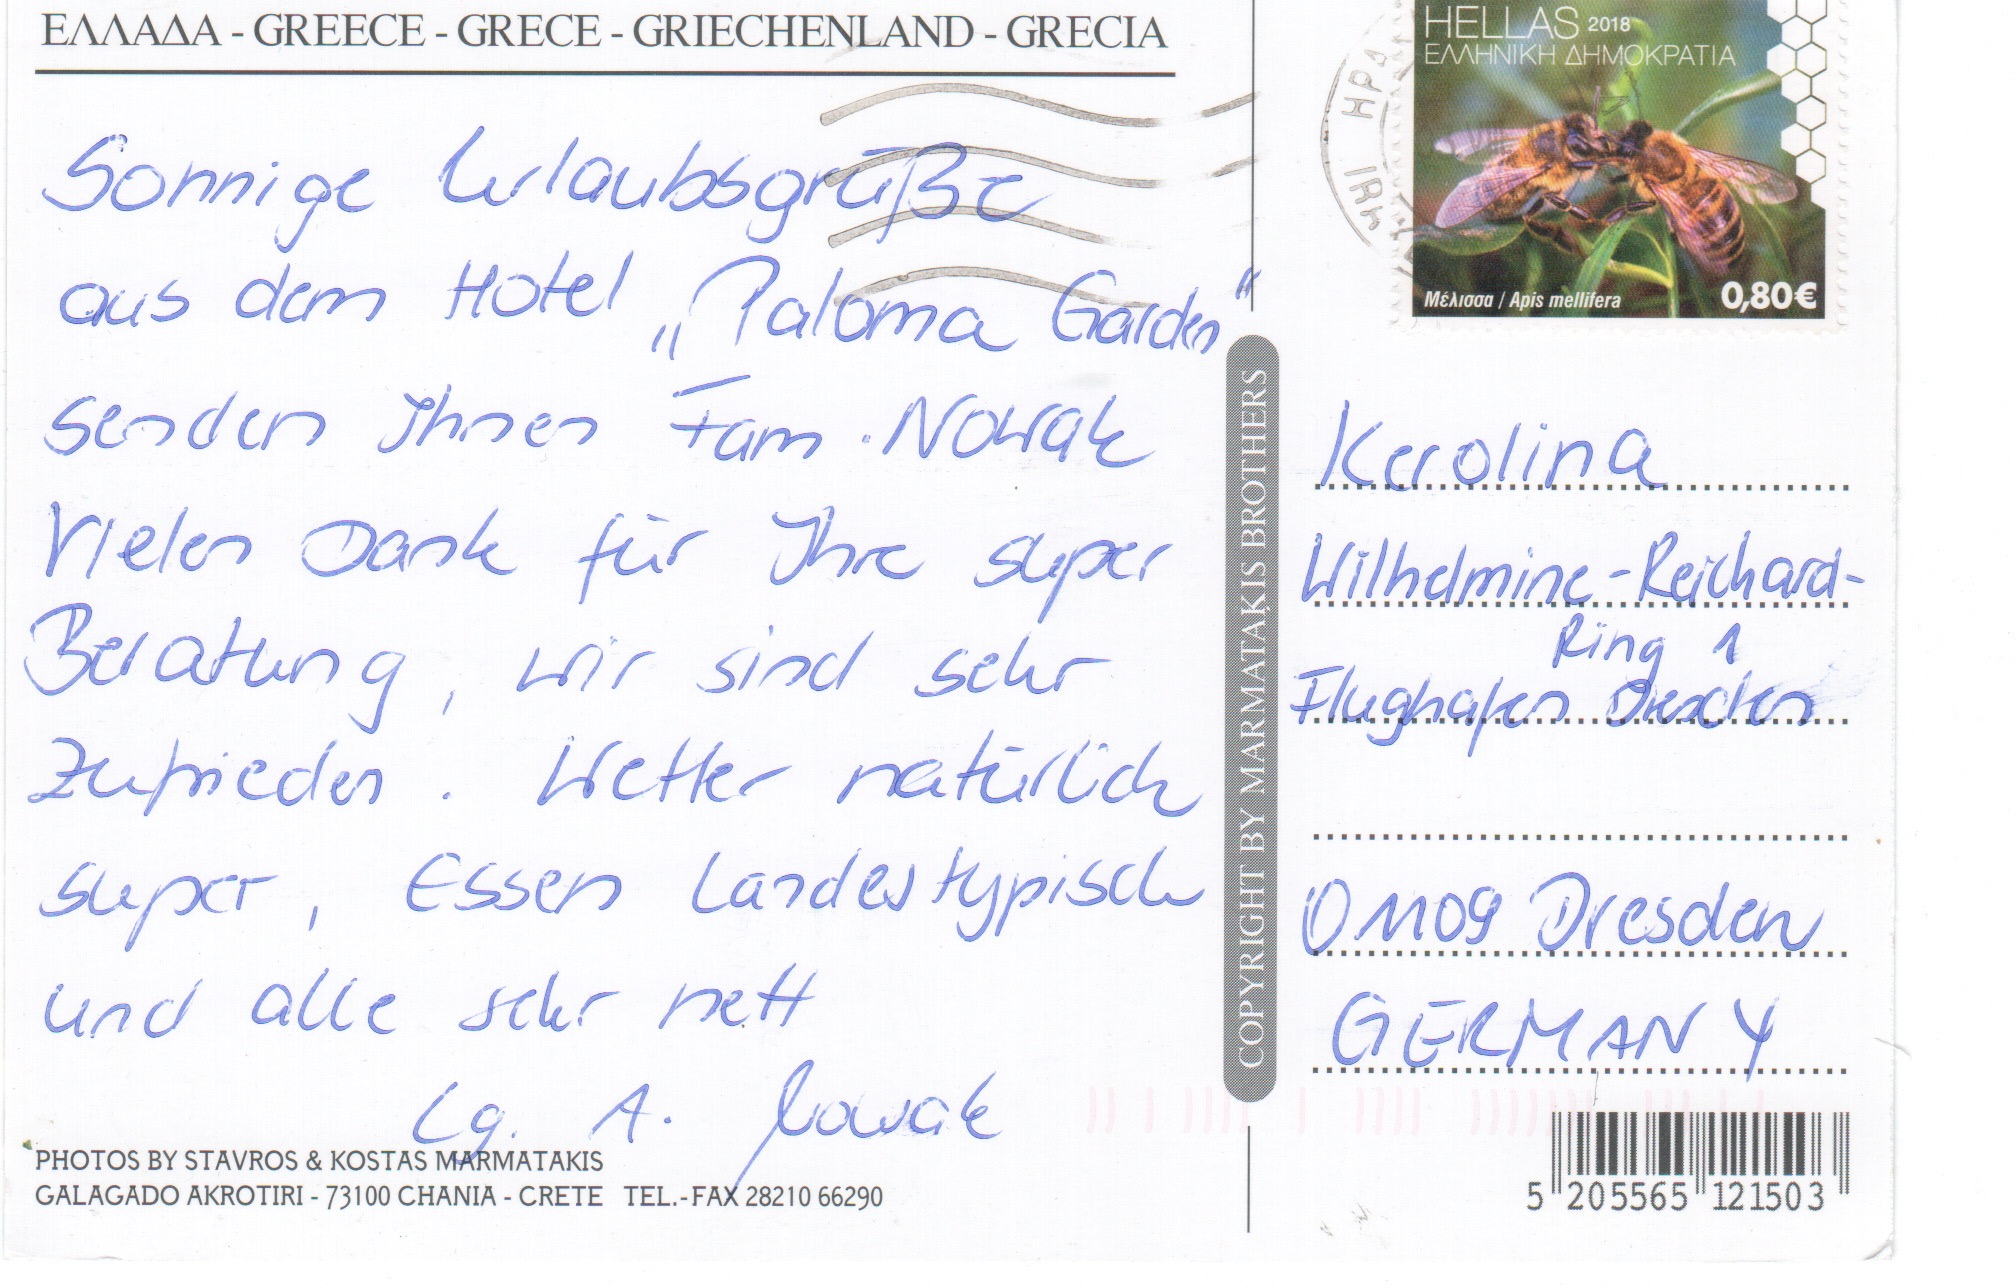 ΕΛΛΑΔΑ - GREECE - GRECE - GRIECHENLAND - GRECIA
Sonnige Urlaubsgrüße
aus dem Hotel „Paloma Garden“
senden Ihnen Fam. Nowak
Vielen Dank für Ihre super
Beratung, wir sind sehr
zufrieden. Wetter natürlich
super, Essen Landestypisch
und alle sehr nett
Lg. A. Nowak
PHOTOS BY STAVROS & KOSTAS MARMATAKIS
GALAGADO AKROTIRI - 73100 CHANIA - CRETE TEL.-FAX 28210 66290
COPYRIGHT BY MARMATAKIS BROTHERS
HELLAS 2018
ΕΛΛΗΝΙΚΗ ΔΗΜΟΚΡΑΤΙΑ
Μέλισσα / Apis mellifera
0,80€
Karolina
Wilhelmine-Reichard-
Ring 1
Flughafen Dresden
01109 Dresden
GERMANY
5 205565 121503